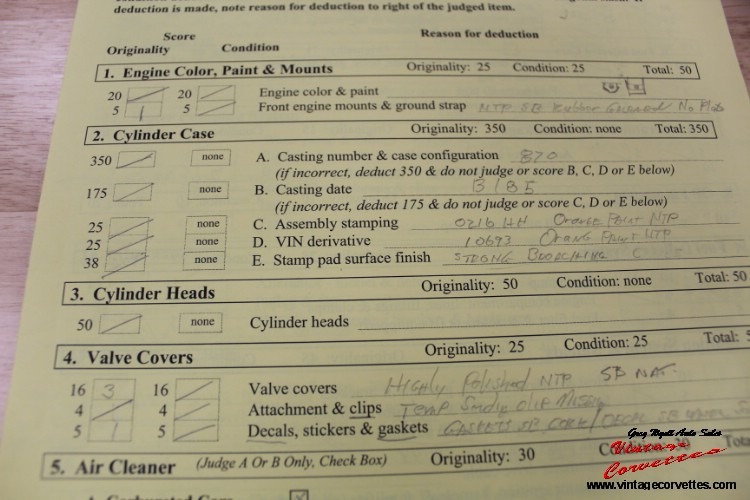 deduction is made, note reason for deduction to right of the judged item.
Score
Originality Condition Reason for deduction
1. Engine Color, Paint & Mounts Originality: 25 Condition: 25 Total: 50
20 20 Engine color & paint
5 1 5 Front engine mounts & ground strap NTP SB Rubber No
2. Cylinder Case Originality: 350 Condition: none Total: 350
350 none A. Casting number & case configuration 870
(if incorrect, deduct 350 & do not judge or score B, C, D or E below)
175 none B. Casting date B185
(if incorrect, deduct 175 & do not judge or score C, D or E below)
25 none C. Assembly stamping 0216 HH Orange Paint NTP
25 none D. VIN derivative 10693 Orange Paint NTP
38 none E. Stamp pad surface finish Strong Broaching
3. Cylinder Heads Originality: 50 Condition: none Total: 50
50 none Cylinder heads
4. Valve Covers Originality: 25 Condition: 25 Total:
16 3 16 Valve covers Highly Polished NTP SB Nat.
4 4 Attachment & clips Temp Sending clip
5 1 5 Decals, stickers & gaskets Gaskets SB Cork / Decal SB
5. Air Cleaner (Judge A Or B Only, Check Box) Originality: 30 Condition: 30
Greg Wyatt Auto Sales
Vintage
Corvettes
www.vintagecorvettes.com